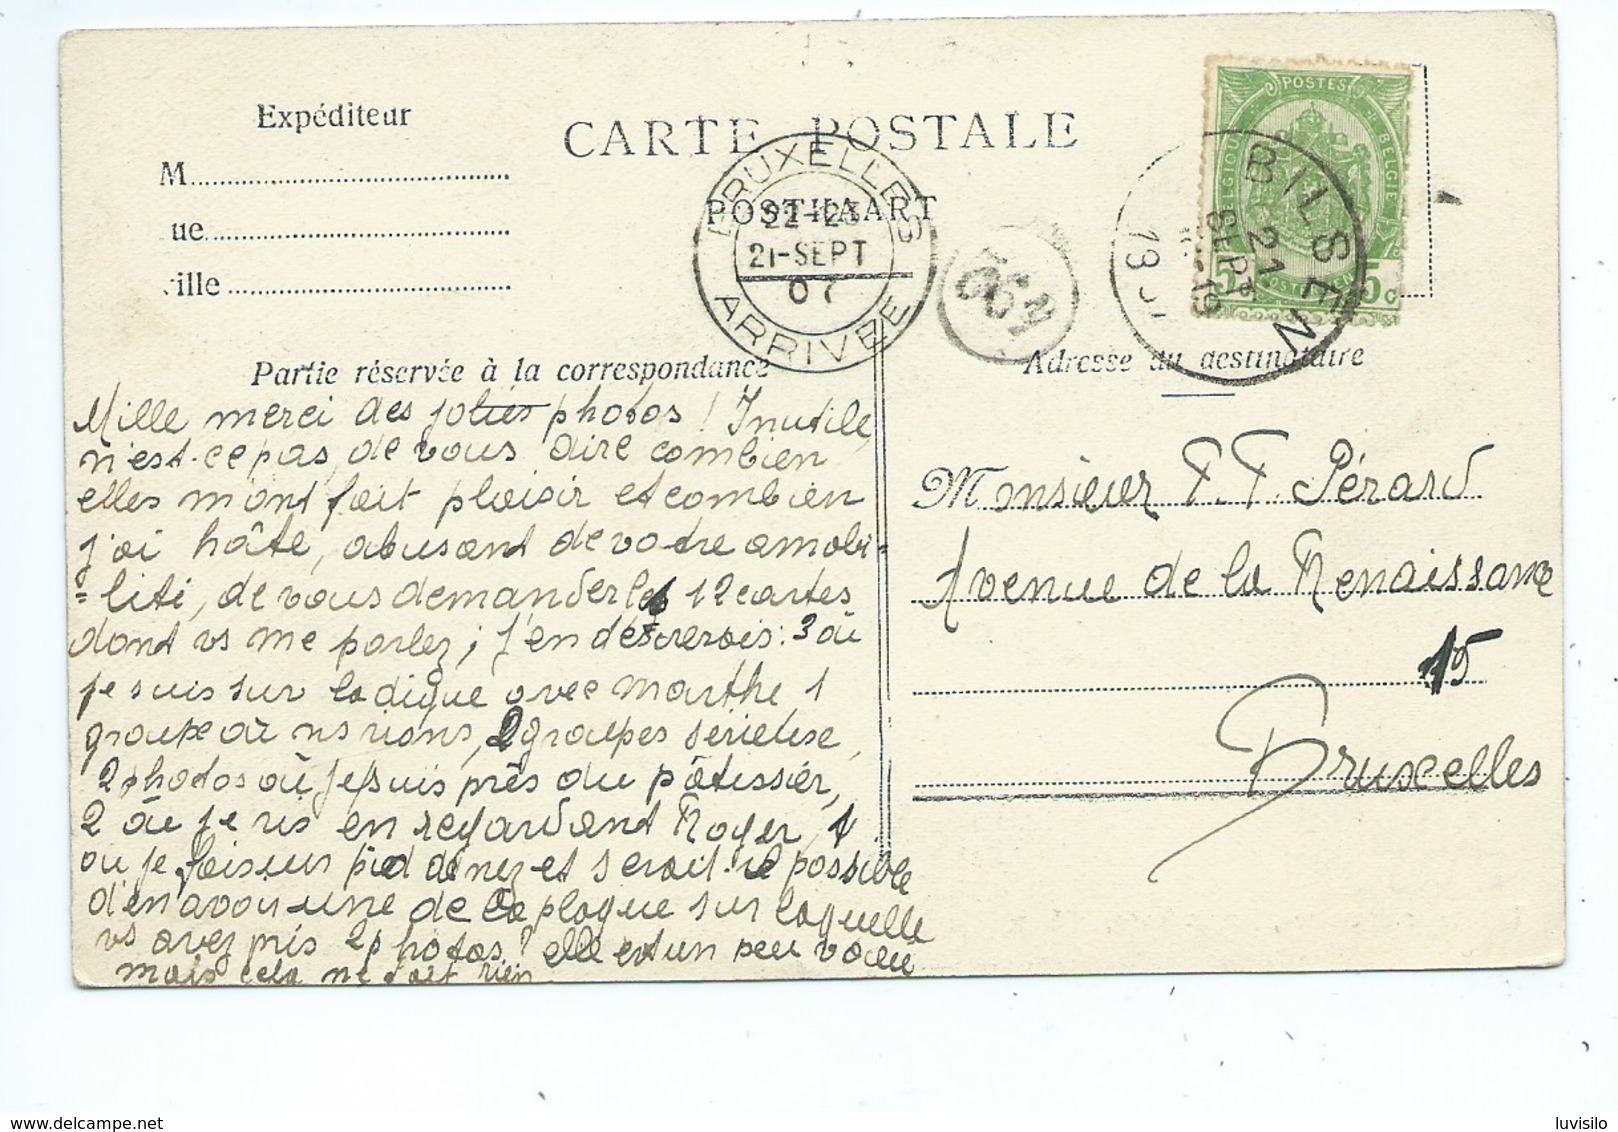 Expéditeur
M
ue
ille
CARTE POSTALE
POSTKAART
BRUXELLES
22-23
21-SEPT
07
ARRIVEE
POSTES
BELGIQUE
BELGIË
5c 5c
BILSEN
21
SEPT
Partie réservée à la correspondance
Adresse du destinataire
Mille merci des jolies photos ! Inutile,
n'est-ce pas, de vous dire combien
elles m'ont fait plaisir et combien
j'ai hâte, abusant de votre amabi-
=lité, de vous demander les 12 cartes
dont vs me parlez ; j'en désirerais : 3 où
je suis sur la digue avec Marthe 1
groupe où ns rions, 2 groupes sérieuse,
2 photos où je suis près du pâtissier,
2 où je ris en regardant Roger, 1
ou je fais un pied de nez et serait-il possible
d'en avoir une de la plaque sur laquelle
vs avez pris 2 photos ? elle est un peu voilée
mais cela ne fait rien
Monsieur F. F. Pérard
Avenue de la Renaissance
15
Bruxelles
delcampe.net
luvisilo